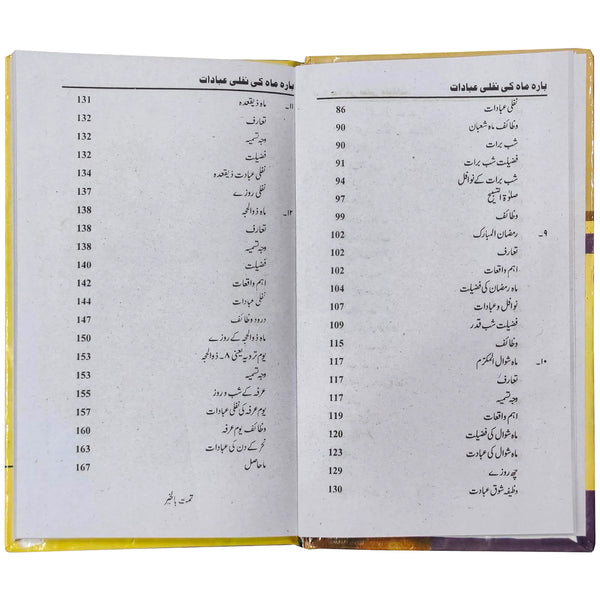 بارہ ماہ کی نفلی عبادات
نفلی عبادات 86
وظائف ماہ شعبان 90
شب برات 90
فضیلت شب برات 91
شب برات کے نوافل 94
صلوٰۃ التسبیح 97
وظائف 99
۹۔ رمضان المبارک 102
تعارف 102
اہم واقعات 102
ماہ رمضان کی فضیلت 104
نوافل و عبادات 107
فضیلت شب قدر 109
وظائف 115
۱۰۔ ماہ شوال المکرم 117
تعارف 117
وجہ تسمیہ 117
اہم واقعات 119
ماہ شوال کی فضیلت 120
ماہ شوال کی عبادت 123
چھ روزے 129
وظیفہ شوق عبادت 130
بارہ ماہ کی نفلی عبادات
۱۱۔ ماہ ذیقعدہ 131
تعارف 132
وجہ تسمیہ 132
فضیلت 132
نفلی عبادت ذیقعدہ 134
نفلی روزے 137
۱۲۔ ماہ ذوالحجہ 138
تعارف 138
وجہ تسمیہ 138
فضیلت 140
اہم واقعات 142
نفلی عبادات 144
درود وظائف 147
ماہ ذوالحجہ کے روزے 150
یوم ترویہ یعنی ۸۔ ذوالحجہ 153
وجہ تسمیہ 153
عرفہ کے شب و روز 155
یوم عرفہ کی نفلی عبادات 157
وظائف یوم عرفہ 160
نحر کے دن کی عبادات 163
ماحاصل 167
تمت بالخیر